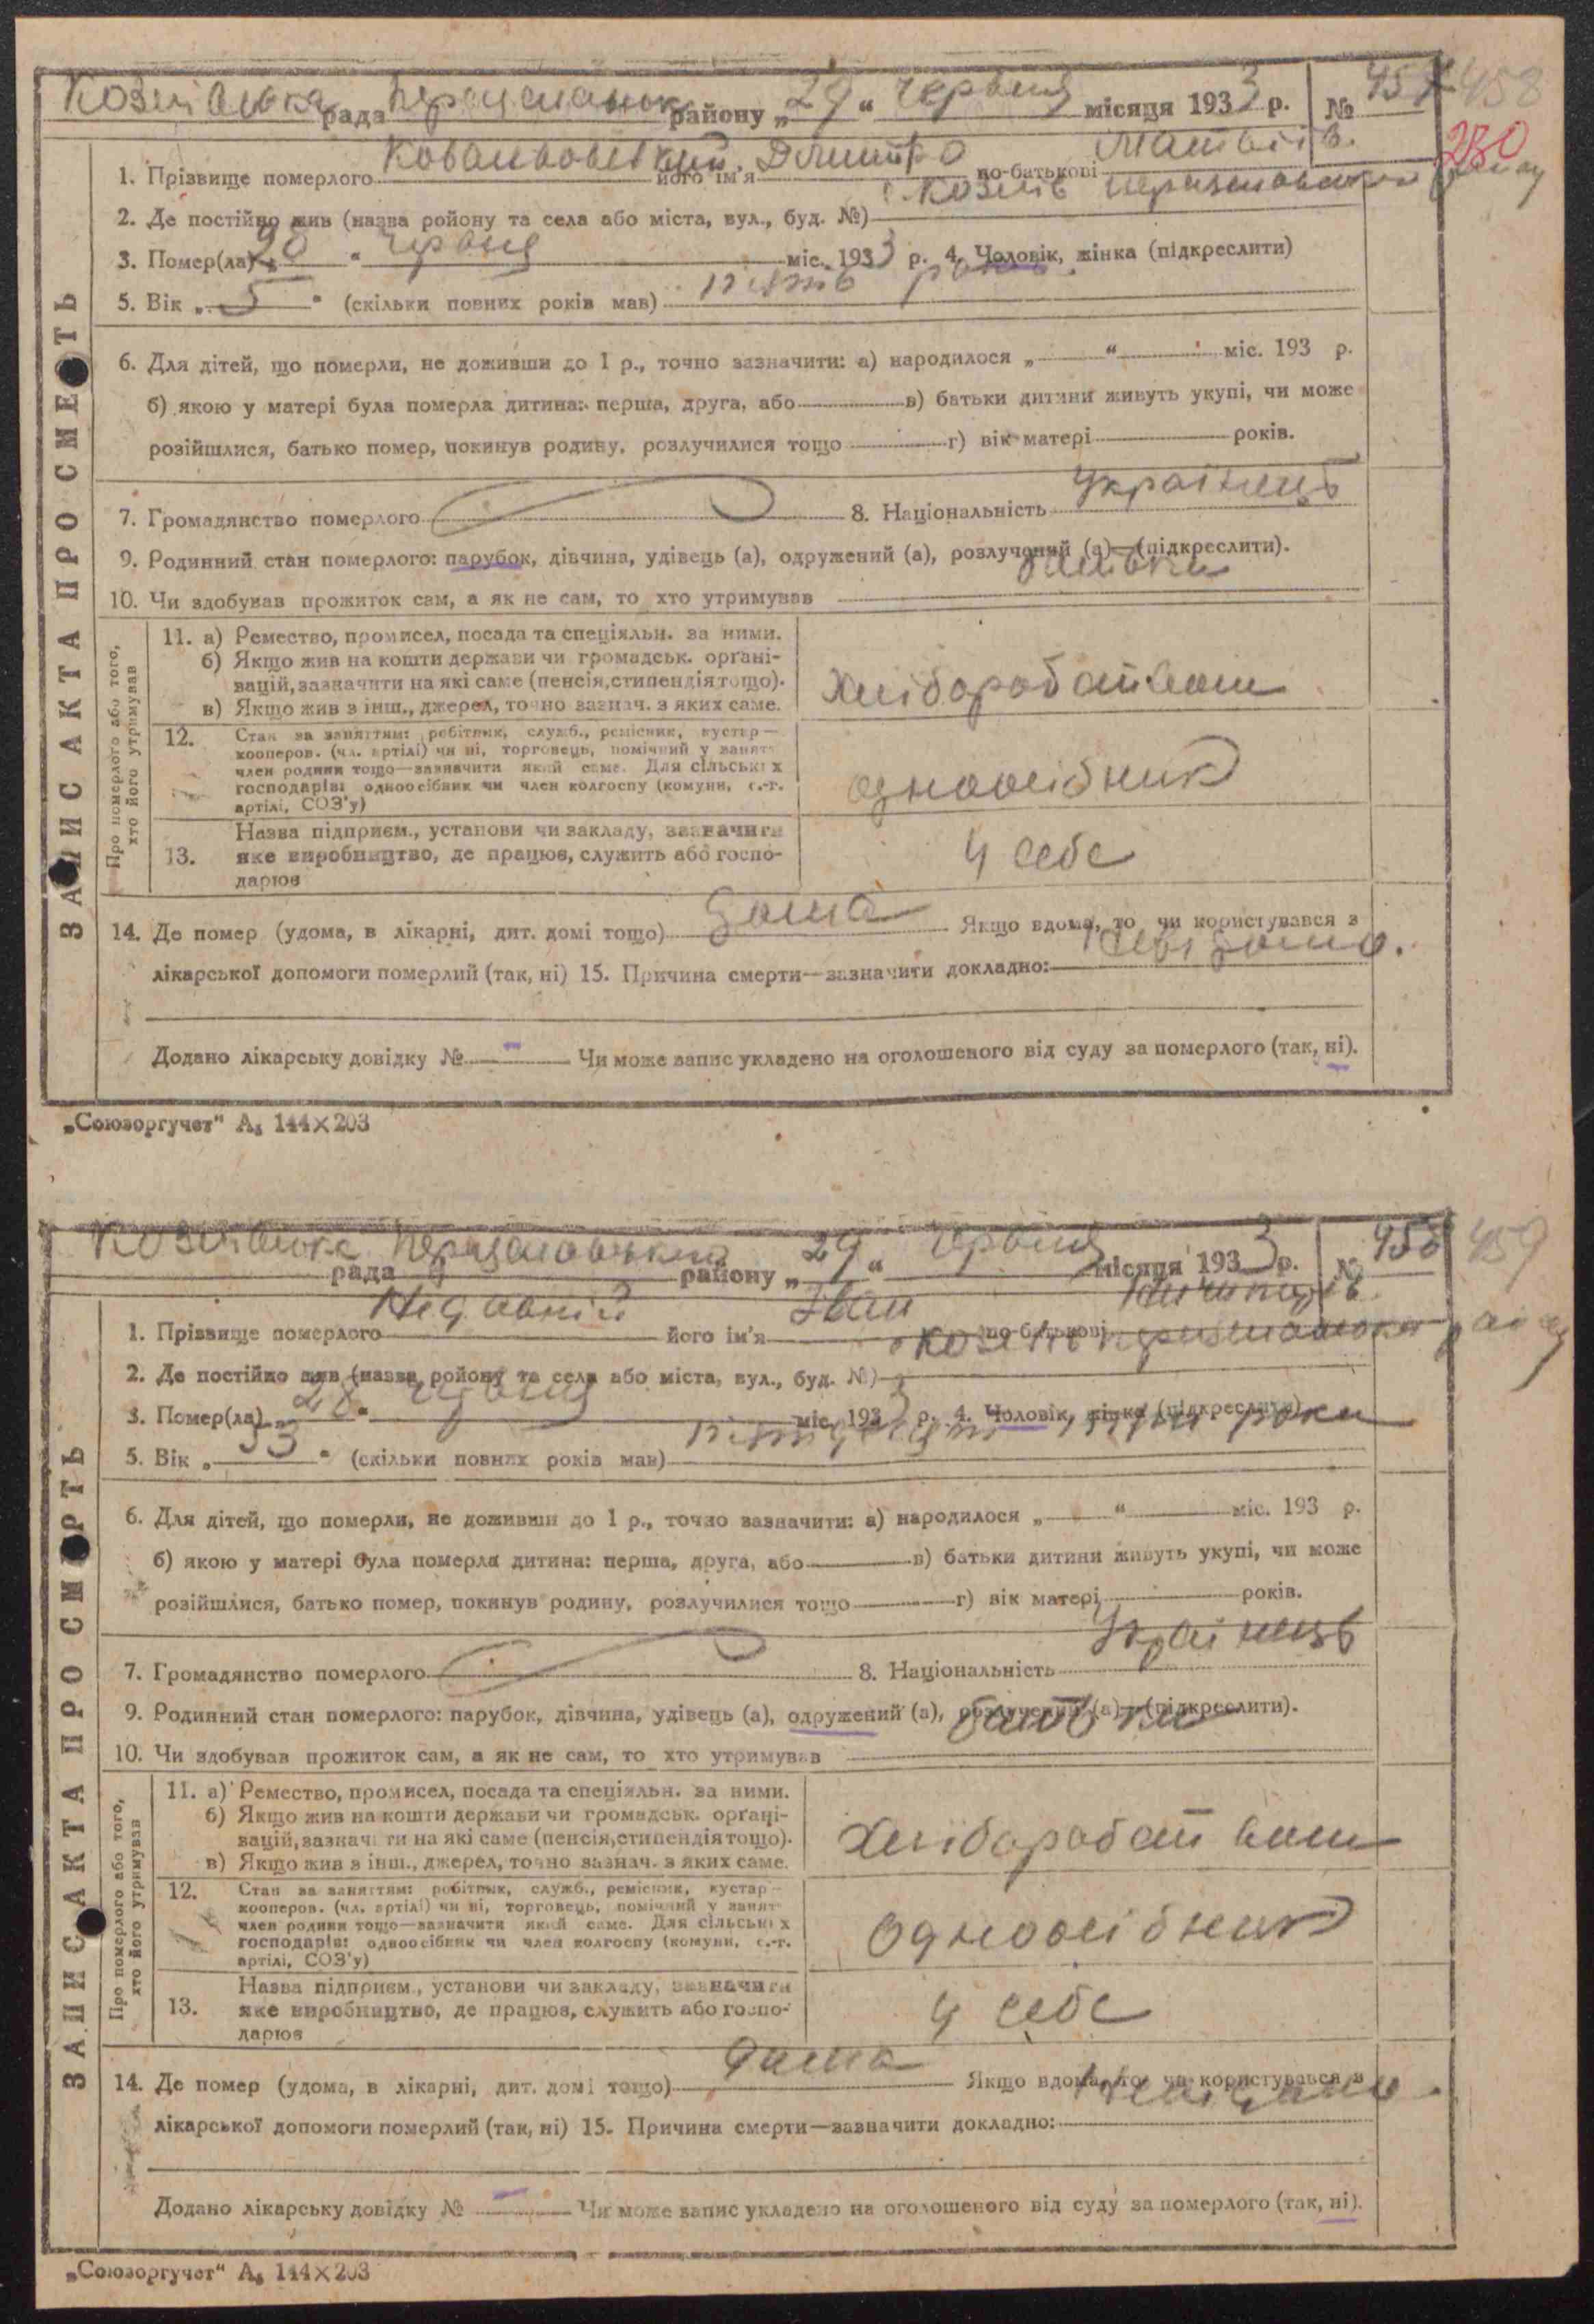 Козлівська рада Переяславськ району „29“ Червня місяця 1933 р. № 457 458
230
1. Прізвище померлого Ковальовський його ім'я Дмитро по-батькові Матвіїв.
2. Де постійно жив (назва району та села або міста, вул., буд. №) с. Козлів Переяславськ району
3. Помер(ла) „28“ Червня міс. 1933 р. 4. Чоловік, жінка (підкреслити)
5. Вік „5“ (скільки повних років мав) п'ять років.
6. Для дітей, що померли, не доживши до 1 р., точно зазначити: а) народилося „ “ міс. 193 р.
б) якою у матері була померла дитина: перша, друга, або в) батьки дитини живуть укупі, чи може
розійшлися, батько помер, покинув родину, розлучилися тощо г) вік матері років.
7. Громадянство померлого 8. Національність Українець
9. Родинний стан померлого: парубок, дівчина, удівець (а), одружений (а), розлучений (а)—(підкреслити).
10. Чи здобував прожиток сам, а як не сам, то хто утримував батьки
ЗАПИС АКТА ПРО СМЕРТЬ
Про померлого або того, хто його утримував
11. а) Ремество, промисел, посада та спеціяльн. за ними.
б) Якщо жив на кошти держави чи громадськ. орґані-
зацій, зазначити на які саме (пенсія, стипендія тощо).
в) Якщо жив з інш., джерел, точно зазнач. з яких саме.
Хліборобством
12. Стан за заняттям: робітник, служб., ремісник, кустар—
кооперов. (чл. артілі) чи ні, торговець, помічний у занят.
член родини тощо—зазначити який саме. Для сільських
господарів: одноосібник чи член колгоспу (комуни, с.-г.
артілі, СОЗ'у)
одноосібник
13. Назва підприєм., установи чи закладу, зазначити
яке виробництво, де працює, служить або госпо-
дарює
у себе
14. Де помер (удома, в лікарні, дит. домі тощо) дома Якщо вдома, то чи користувався з
лікарської допомоги померлий (так, ні) 15. Причина смерти—зазначити докладно: невідомо.
Додано лікарську довідку № — Чи може запис укладено на оголошеного від суду за померлого (так, ні).
„Союзоргучет“ А₅ 144×203
Козлівська рада Переяславський району „29“ Червня місяця 1933 р. № 458 459
1. Прізвище померлого його ім'я Іван по-батькові
2. Де постійно жив (назва району та села або міста, вул., буд. №) с. Козлів Переяславськ району
3. Помер(ла) „28“ Червня міс. 1933 р. 4. Чоловік, жінка (підкреслити)
5. Вік „53“ (скільки повних років мав) п'ятдесят три роки
6. Для дітей, що померли, не доживши до 1 р., точно зазначити: а) народилося „ “ міс. 193 р.
б) якою у матері була померла дитина: перша, друга, або в) батьки дитини живуть укупі, чи може
розійшлися, батько помер, покинув родину, розлучилися тощо г) вік матері років.
7. Громадянство померлого 8. Національність Українець
9. Родинний стан померлого: парубок, дівчина, удівець (а), одружений (а), розлучений (а)—(підкреслити).
10. Чи здобував прожиток сам, а як не сам, то хто утримував
ЗАПИС АКТА ПРО СМЕРТЬ
Про померлого або того, хто його утримував
11. а) Ремество, промисел, посада та спеціяльн. за ними.
б) Якщо жив на кошти держави чи громадськ. орґані-
зацій, зазначити на які саме (пенсія, стипендія тощо).
в) Якщо жив з інш., джерел, точно зазнач. з яких саме.
Хліборобством
12. Стан за заняттям: робітник, служб., ремісник, кустар—
кооперов. (чл. артілі) чи ні, торговець, помічний у занят.
член родини тощо—зазначити який саме. Для сільських
господарів: одноосібник чи член колгоспу (комуни, с.-г.
артілі, СОЗ'у)
Одноосібник
13. Назва підприєм., установи чи закладу, зазначити
яке виробництво, де працює, служить або госпо-
дарює
у себе
14. Де помер (удома, в лікарні, дит. домі тощо) дома Якщо вдома, то чи користувався з
лікарської допомоги померлий (так, ні) 15. Причина смерти—зазначити докладно: невідомо.
Додано лікарську довідку № — Чи може запис укладено на оголошеного від суду за померлого (так, ні).
„Союзоргучет“ А₅ 144×203